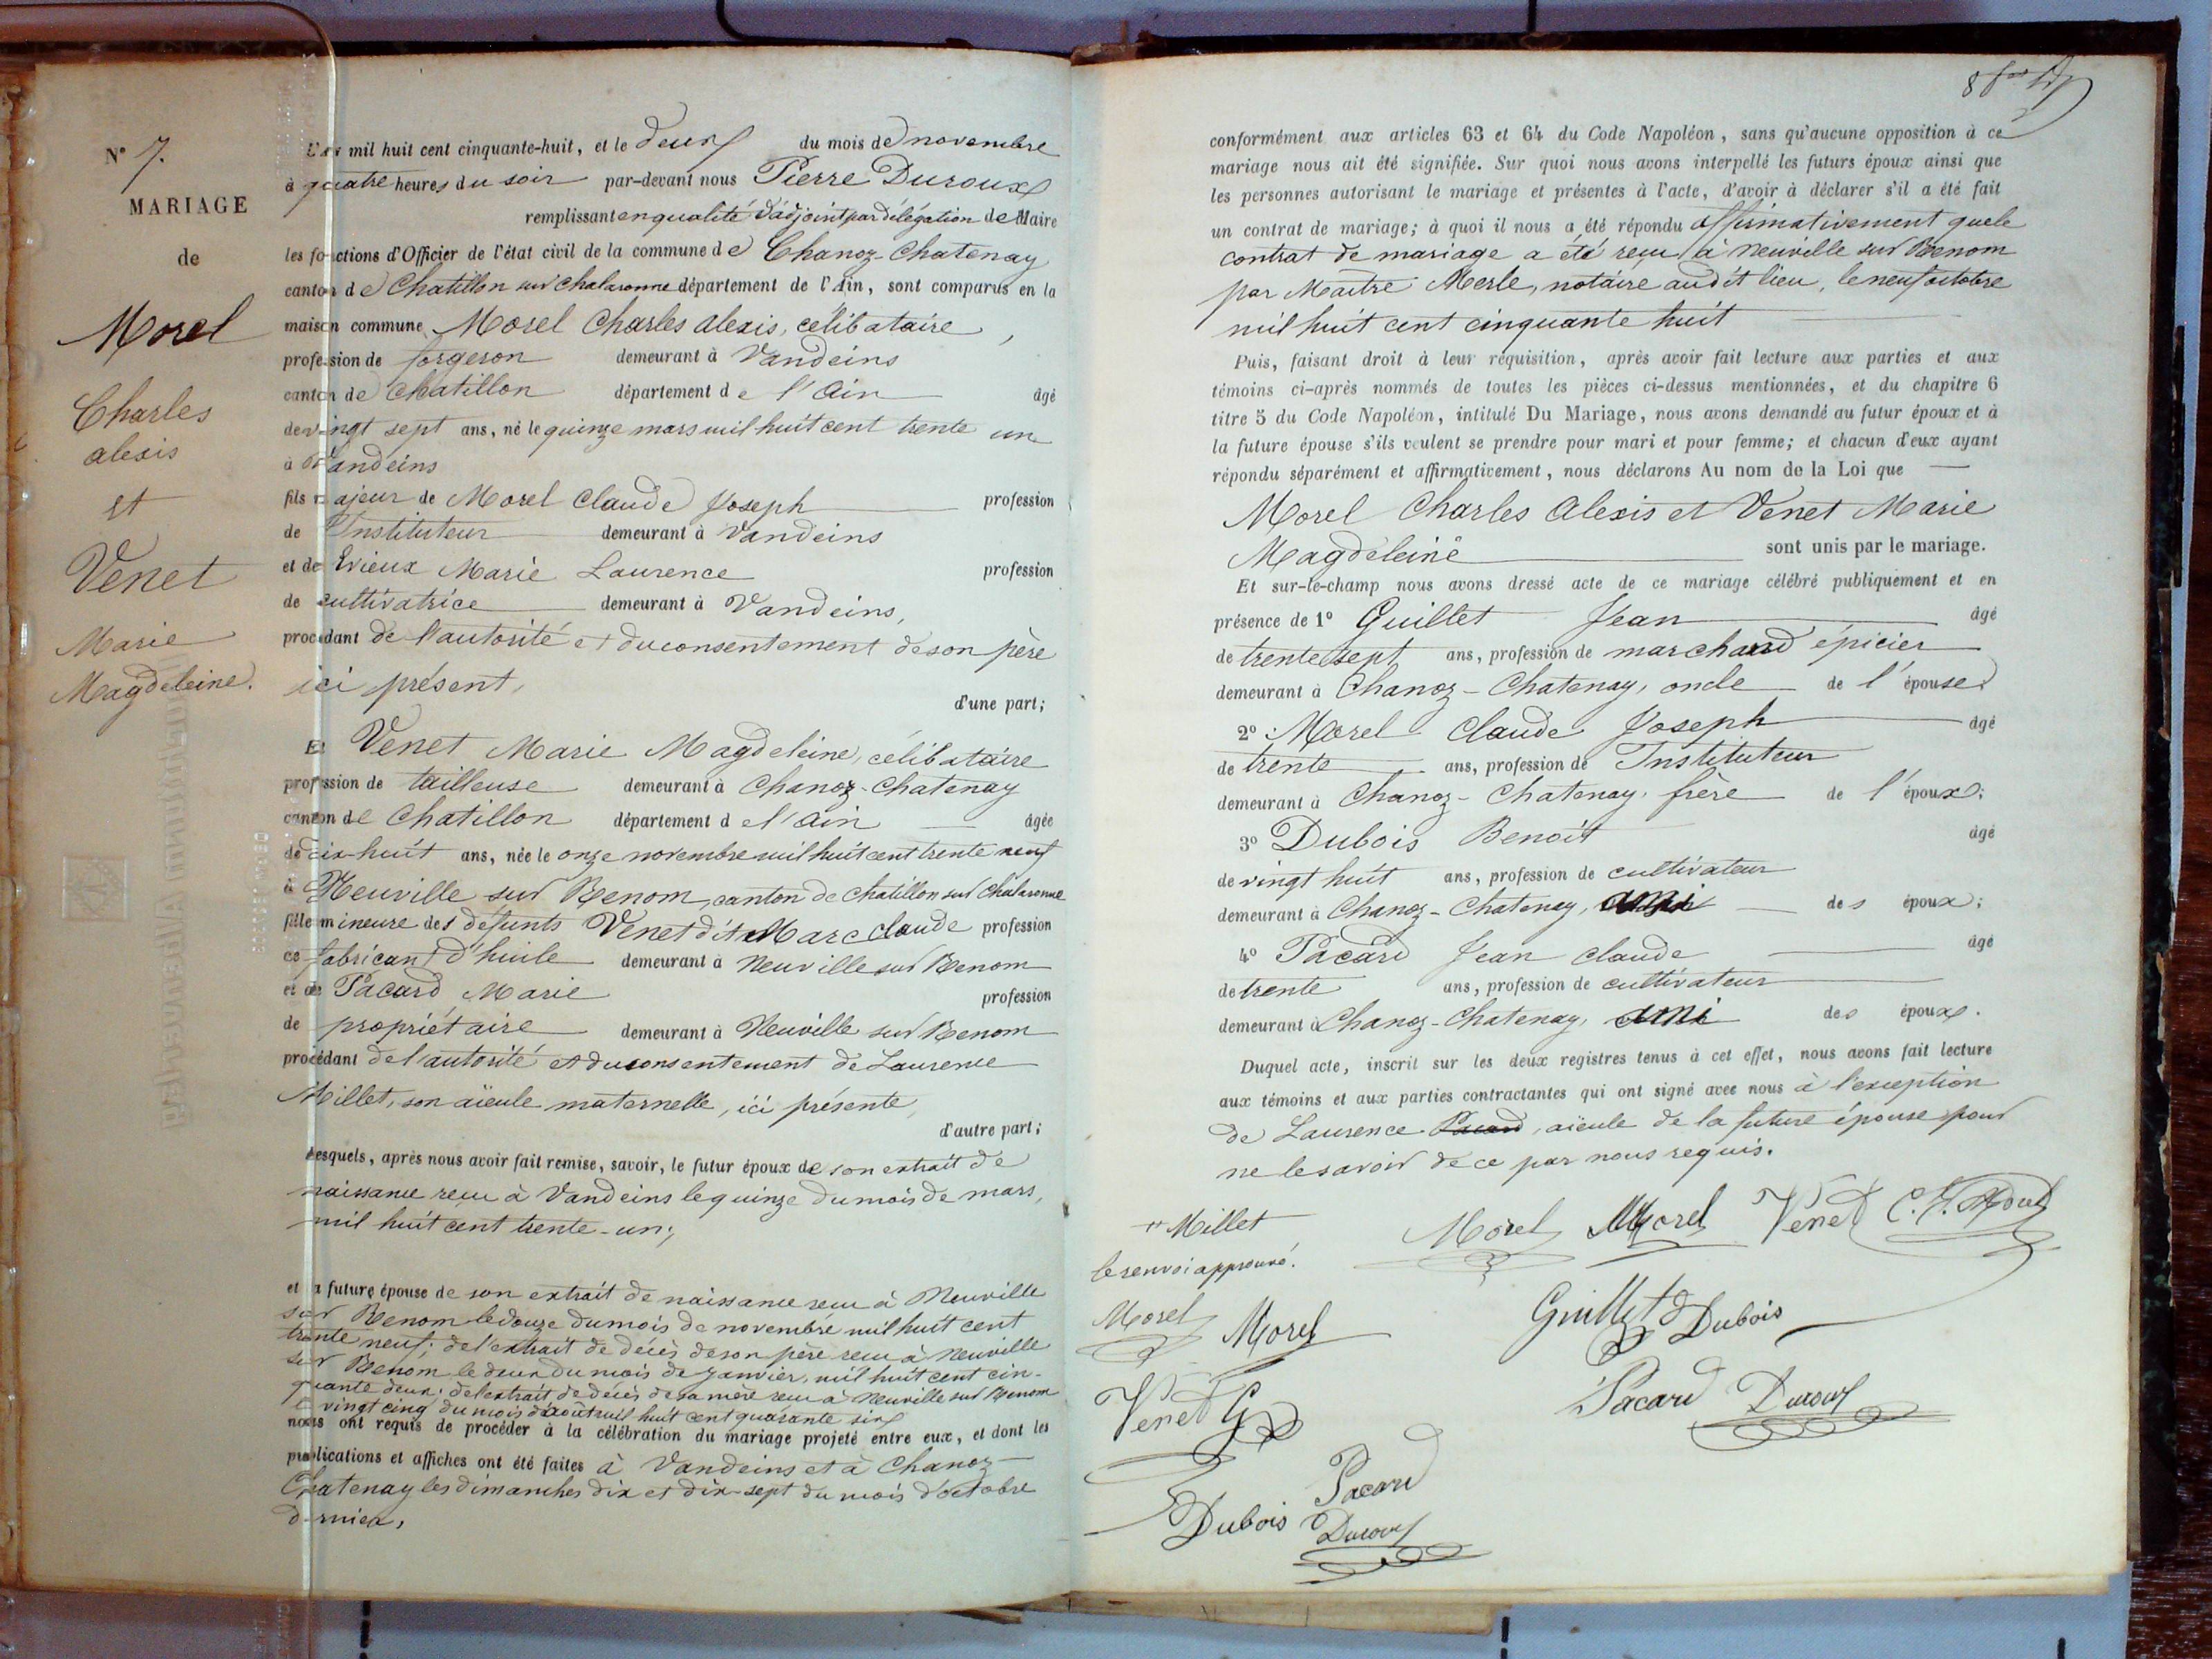 N° 7.
MARIAGE
de
Morel
Charles
alexis
et
Venet
Marie
Magdeleine.
L'an mil huit cent cinquante-huit, et le deux du mois de novembre
à quatre heures du soir par-devant nous Pierre Duroux
remplissant en qualité d'adjoint par délégation de Maire
les fonctions d'Officier de l'état civil de la commune de Chanoz-Chatenay
canton de Chatillon sur Chalaronne département de l'Ain, sont comparus en la
maison commune Morel Charles alexis, célibataire,
profession de forgeron demeurant à Vandeins
canton de Chatillon département de l'Ain âgé
de vingt sept ans, né le quinze mars mil huit cent trente un
à Vandeins
fils majeur de Morel Claude Joseph profession
de Instituteur demeurant à Vandeins
et de Evieux Marie Laurence profession
de cultivatrice demeurant à Vandeins,
procédant de l'autorité et du consentement de son père
ici présent,
d'une part;
Et Venet Marie Magdeleine, célibataire
profession de tailleuse demeurant à Chanoz-Chatenay
canton de Chatillon département de l'ain âgée
de dix-huit ans, née le onze novembre mil huit cent trente neuf
à Neuville sur Renom, canton de Chatillon sur Chalaronne
fille mineure des défunts Venet dit Marc Claude profession
de fabricant d'huile demeurant à Neuville sur Renom
et de Pacard Marie profession
de propriétaire demeurant à Neuville sur Renom
procédant de l'autorité et du consentement de Laurence
Millet, son aïeule maternelle, ici présente,
d'autre part;
Lesquels, après nous avoir fait remise, savoir, le futur époux de son extrait de
naissance reçu à Vandeins le quinze du mois de mars,
mil huit cent trente-un;
et la future épouse de son extrait de naissance reçu à Neuville
sur Renom le douze du mois de novembre mil huit cent
trente neuf; de l'extrait de décès de son père reçu à Neuville
sur Renom le deux du mois de janvier, mil huit cent cin-
quante deux; de l'extrait de décès de sa mère reçu à Neuville sur Renom
le vingt cinq du mois d'août mil huit cent quarante six
nous ont requis de procéder à la célébration du mariage projeté entre eux, et dont les
publications et affiches ont été faites à Vandeins et à Chanoz-
Chatenay les dimanches dix et dix-sept du mois d'octobre
dernier,
8
conformément aux articles 63 et 64 du Code Napoléon, sans qu'aucune opposition à ce
mariage nous ait été signifiée. Sur quoi nous avons interpellé les futurs époux ainsi que
les personnes autorisant le mariage et présentes à l'acte, d'avoir à déclarer s'il a été fait
un contrat de mariage; à quoi il nous a été répondu affirmativement que le
contrat de mariage a été reçu à Neuville sur Renom
par Maître Merle, notaire audit lieu, le neuf octobre
mil huit cent cinquante huit
Puis, faisant droit à leur réquisition, après avoir fait lecture aux parties et aux
témoins ci-après nommés de toutes les pièces ci-dessus mentionnées, et du chapitre 6
titre 5 du Code Napoléon, intitulé Du Mariage, nous avons demandé au futur époux et à
la future épouse s'ils veulent se prendre pour mari et pour femme; et chacun d'eux ayant
répondu séparément et affirmativement, nous déclarons Au nom de la Loi que
Morel Charles Alexis et Venet Marie
Magdeleine sont unis par le mariage.
Et sur-le-champ nous avons dressé acte de ce mariage célébré publiquement et en
présence de 1° Guillet Jean âgé
de trente sept ans, profession de marchand épicier
demeurant à Chanoz-Chatenay, oncle de l'épouse
2° Morel Claude Joseph âgé
de trente ans, profession de Instituteur
demeurant à Chanoz-Chatenay, frère de l'époux;
3° Dubois Benoit âgé
de vingt huit ans, profession de cultivateur
demeurant à Chanoz-Chatenay, ami des époux;
4° Pacard Jean Claude âgé
de trente ans, profession de cultivateur
demeurant à Chanoz-Chatenay, ami des époux.
Duquel acte, inscrit sur les deux registres tenus à cet effet, nous avons fait lecture
aux témoins et aux parties contractantes qui ont signé avec nous à l'exception
de Laurence Pacard, aïeule de la future épouse pour
ne le savoir de ce par nous requis.
Millet
le renvoi approuvé.
Morel Morel Venet C. J. Morel
Morel Morel
Guillet Dubois
Venet G
Pacard Duroux
Pacard
Dubois Duroux